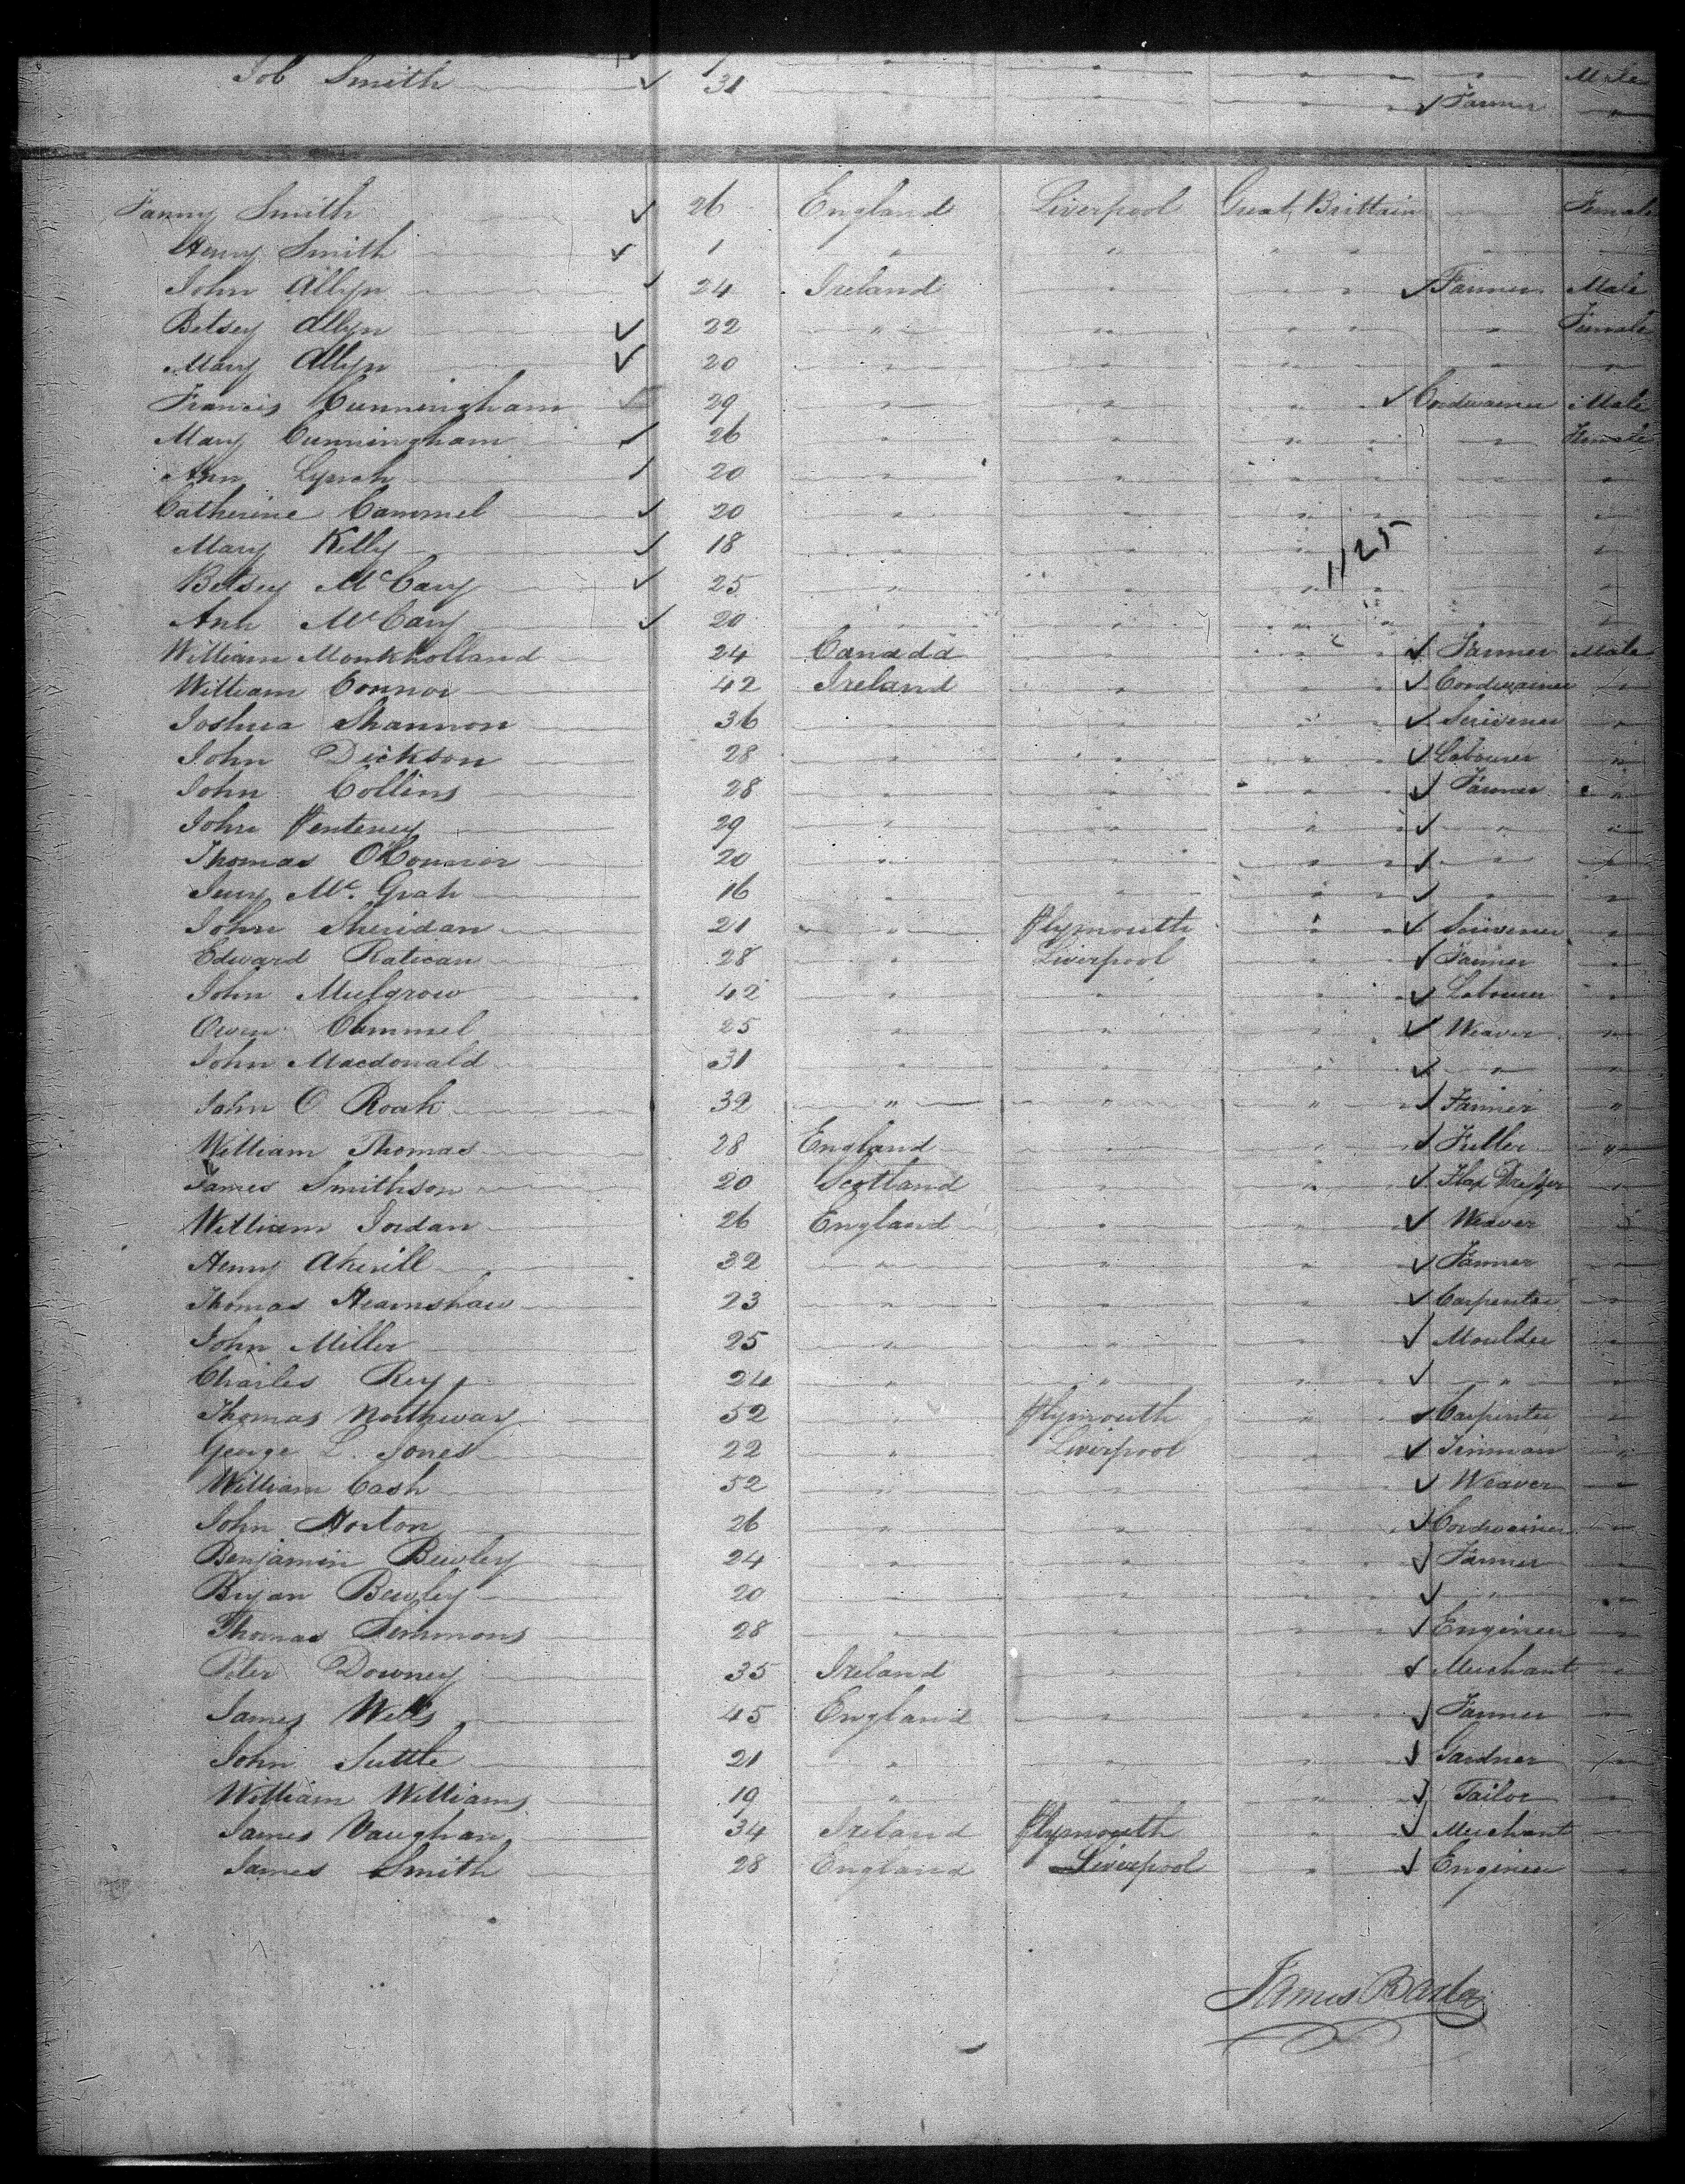 1 " " " " Male
Job Smith 31 " " " Farmer "
Fanny Smith 26 England Liverpool Great Brittain Female
Henry Smith 1 " " " " "
John Allyn 24 Ireland " " " Farmer Male
Betsey Allyn 22 " " " " " Female
Mary Allyn 20 " " " " "
Francis Cunningham 29 " " " " Cordwainer Male
Mary Cunningham 26 " " " " Female
Ann Lynch 20 " " " " "
Catherine Cammel 20 " " " " "
Mary Kelly 18 " " " " "
1125
Betsey McCary 25 " " " " "
Ann McCary 20 " " " " "
William Monkholland 24 Canada " " " Farmer Male
William Connor 42 Ireland " " " Cordwainer "
Joshua Shannon 36 " " " " Scrivener "
John Dickson 28 " " " " Labourer "
John Collins 28 " " " " Farmer "
John Penteney 29 " " " " " "
Thomas OConnor 20 " " " " " "
Mc. Grah 16 " " " " " "
John Sheridan 21 " Plymouth " " Scrivener "
Edward Ratican 28 " Liverpool " " Farmer "
John Mulgrow 42 " " " " Labourer "
Owen Cammel 25 " " " " Weaver "
John Macdonald 31 " " " " " "
John O Roak 32 " " " " Farmer "
William Thomas 28 England " " " Fuller "
James Smithson 20 Scotland " " " Flax Dresser "
William Jordan 26 England " " " Weaver "
Henry Akerill 32 " " " " Farmer "
Thomas Hearnshaw 23 " " " " Carpenter "
John Miller 25 " " " " Moulder "
Charles Rey 24 " " " " " "
Thomas Northway 52 " Plymouth " " Carpenter "
George L. Jones 22 " Liverpool " " Tinman "
William Cash 52 " " " " Weaver "
John Horton 26 " " " " Cordwainer "
Benjamin Bewley 24 " " " " Farmer "
Bryan Bewley 20 " " " " " "
Thomas Simmons 28 " " " " Engineer "
Peter Downey 35 Ireland " " " Merchant "
James Wells 45 England " " " Farmer "
John Suttle 21 " " " " Gardner "
William Williams 19 " " " " Tailor "
James Vaughan 34 Ireland Plymouth " " Merchant "
James Smith 28 England Liverpool " " Engineer "
James Barla